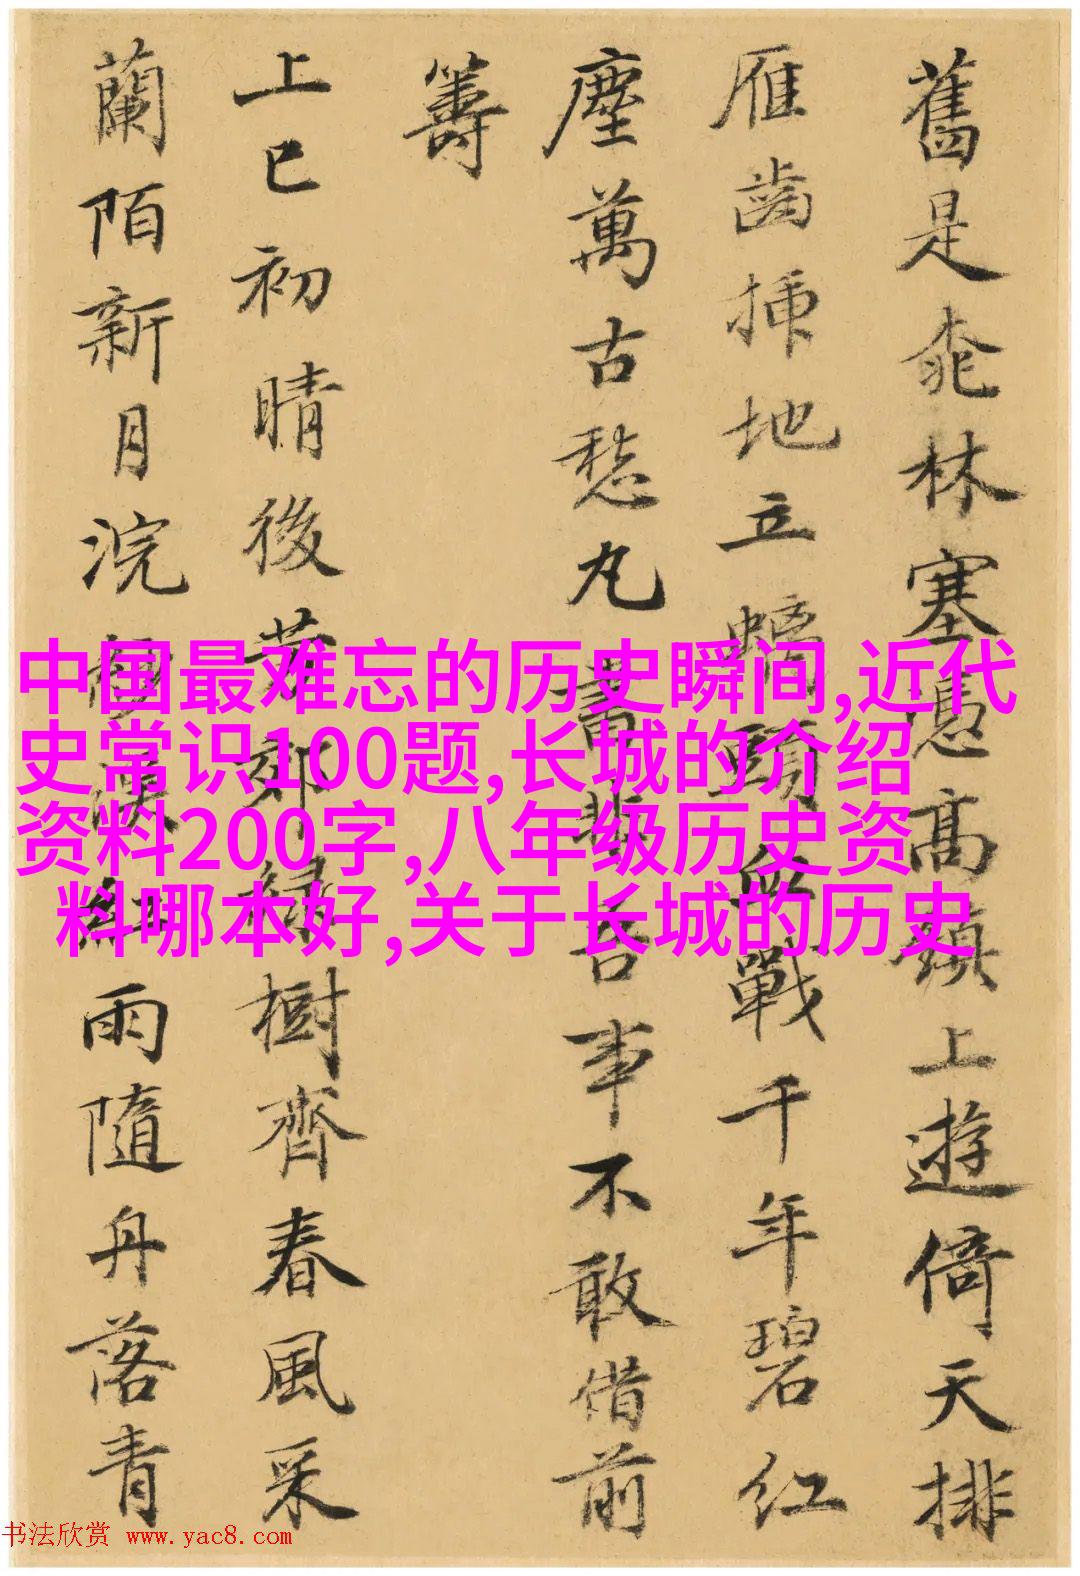 舊是桃林塞憑高鎮上遊倚天排
雁齒插地立螭頭血戰千年碧紅
塵萬古愁丸書吾事不敢借前
籌
上巳初晴後芳郊綠樹齊春風采
蘭陌新月浣溪紅雨隨丹落青
中国最难忘的历史瞬间,近代
史常识100题,长城的介绍
资料200字,八年级历史资
料哪本好,关于长城的历史
书法欣赏 www.yac8.com